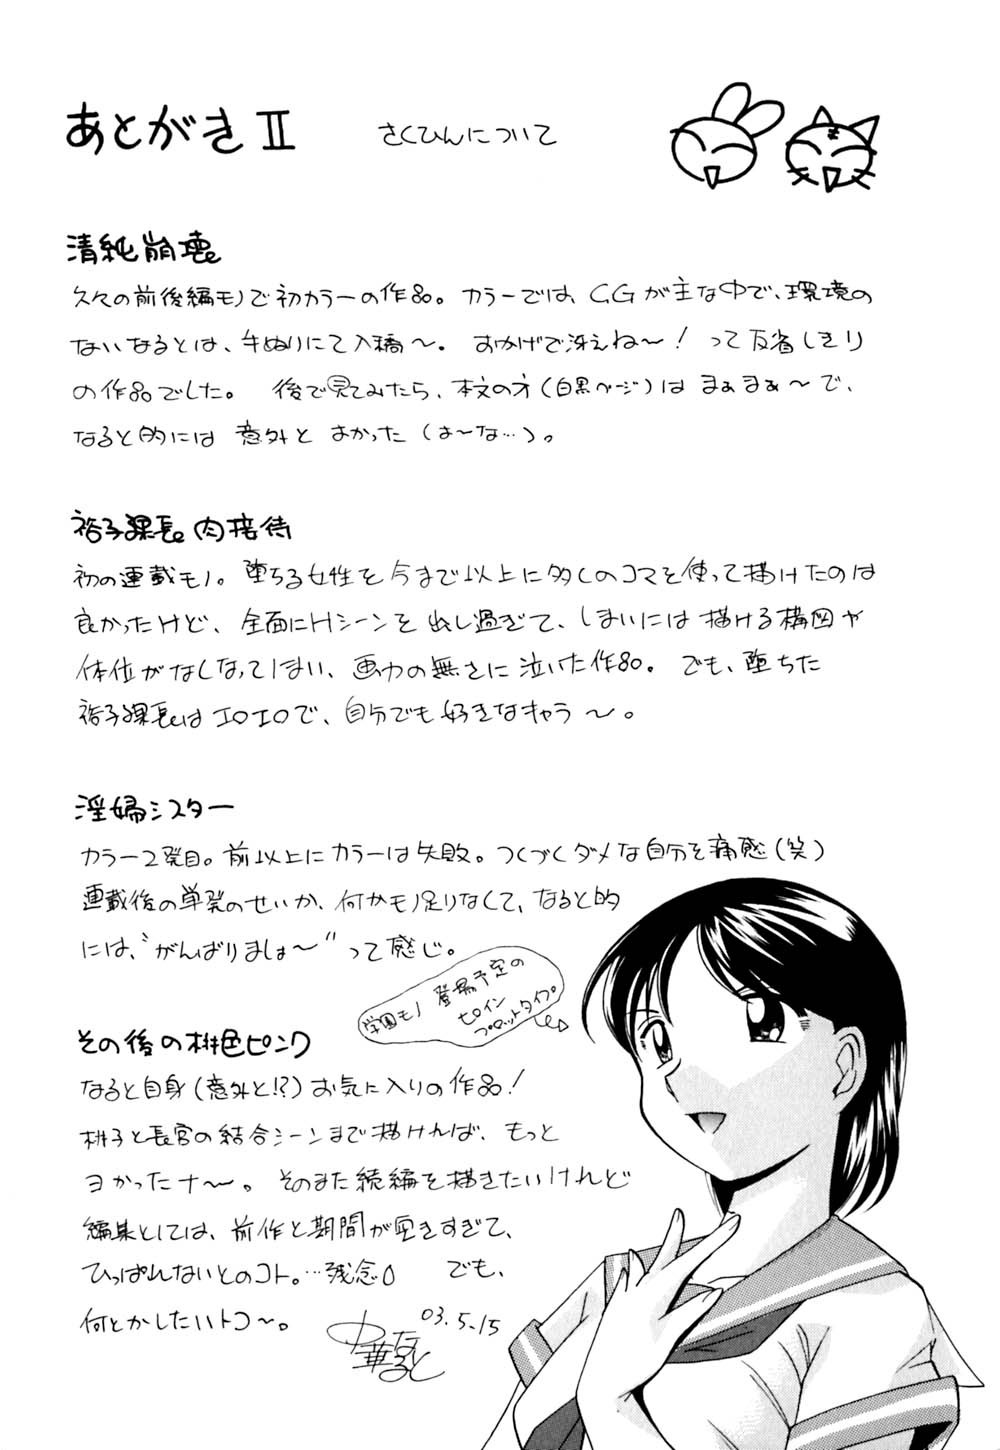 あとがきⅡ さくひんについて
清純崩壊。
久々の前後編モノで初カラーの作品。カラーでは、CGが主な中で、環境の
ないなるとは、手ぬりにて入稿～。おかげで冴えね～！って反省しきり
の作品でした。後で見てみたら、本文の方（白黒ページ）はまぁまぁ～で、
なると的には意外とよかった（は～な…）。
裕子課長。肉接待
初の連載モノ。堕ちる女性を今まで以上に多くのコマを使って描けたのは
良かったけど、全面にHシーンを出し過ぎて、しまいには描ける構図や
体位がなくなってしまい、画力の無さに泣いた作品。でも、堕ちた
裕子課長はエロエロで、自分でも好きなキャラ～。
淫婦シスター
カラー2発目。前以上にカラーは失敗。つくづくダメな自分を痛感（笑）
連載後の単発のせいか、何かモノ足りなくて、なると的
には、“がんばりましょ～”って感じ。
学園モノ登場予定の
ヒロイン
プロットタイプ
その後の桃色ピンク
なると自身（意外と!?）お気に入りの作品！
桃子と長官の結合シーンまで描ければ、もっと
ヨかったナ～。そのまた続編を描きたいけれど
編集としては、前作と期間が空きすぎて、
ひっぱれないとのコト。…残念 でも、
何とかしたいトコ～。
03.5.15
中華なると